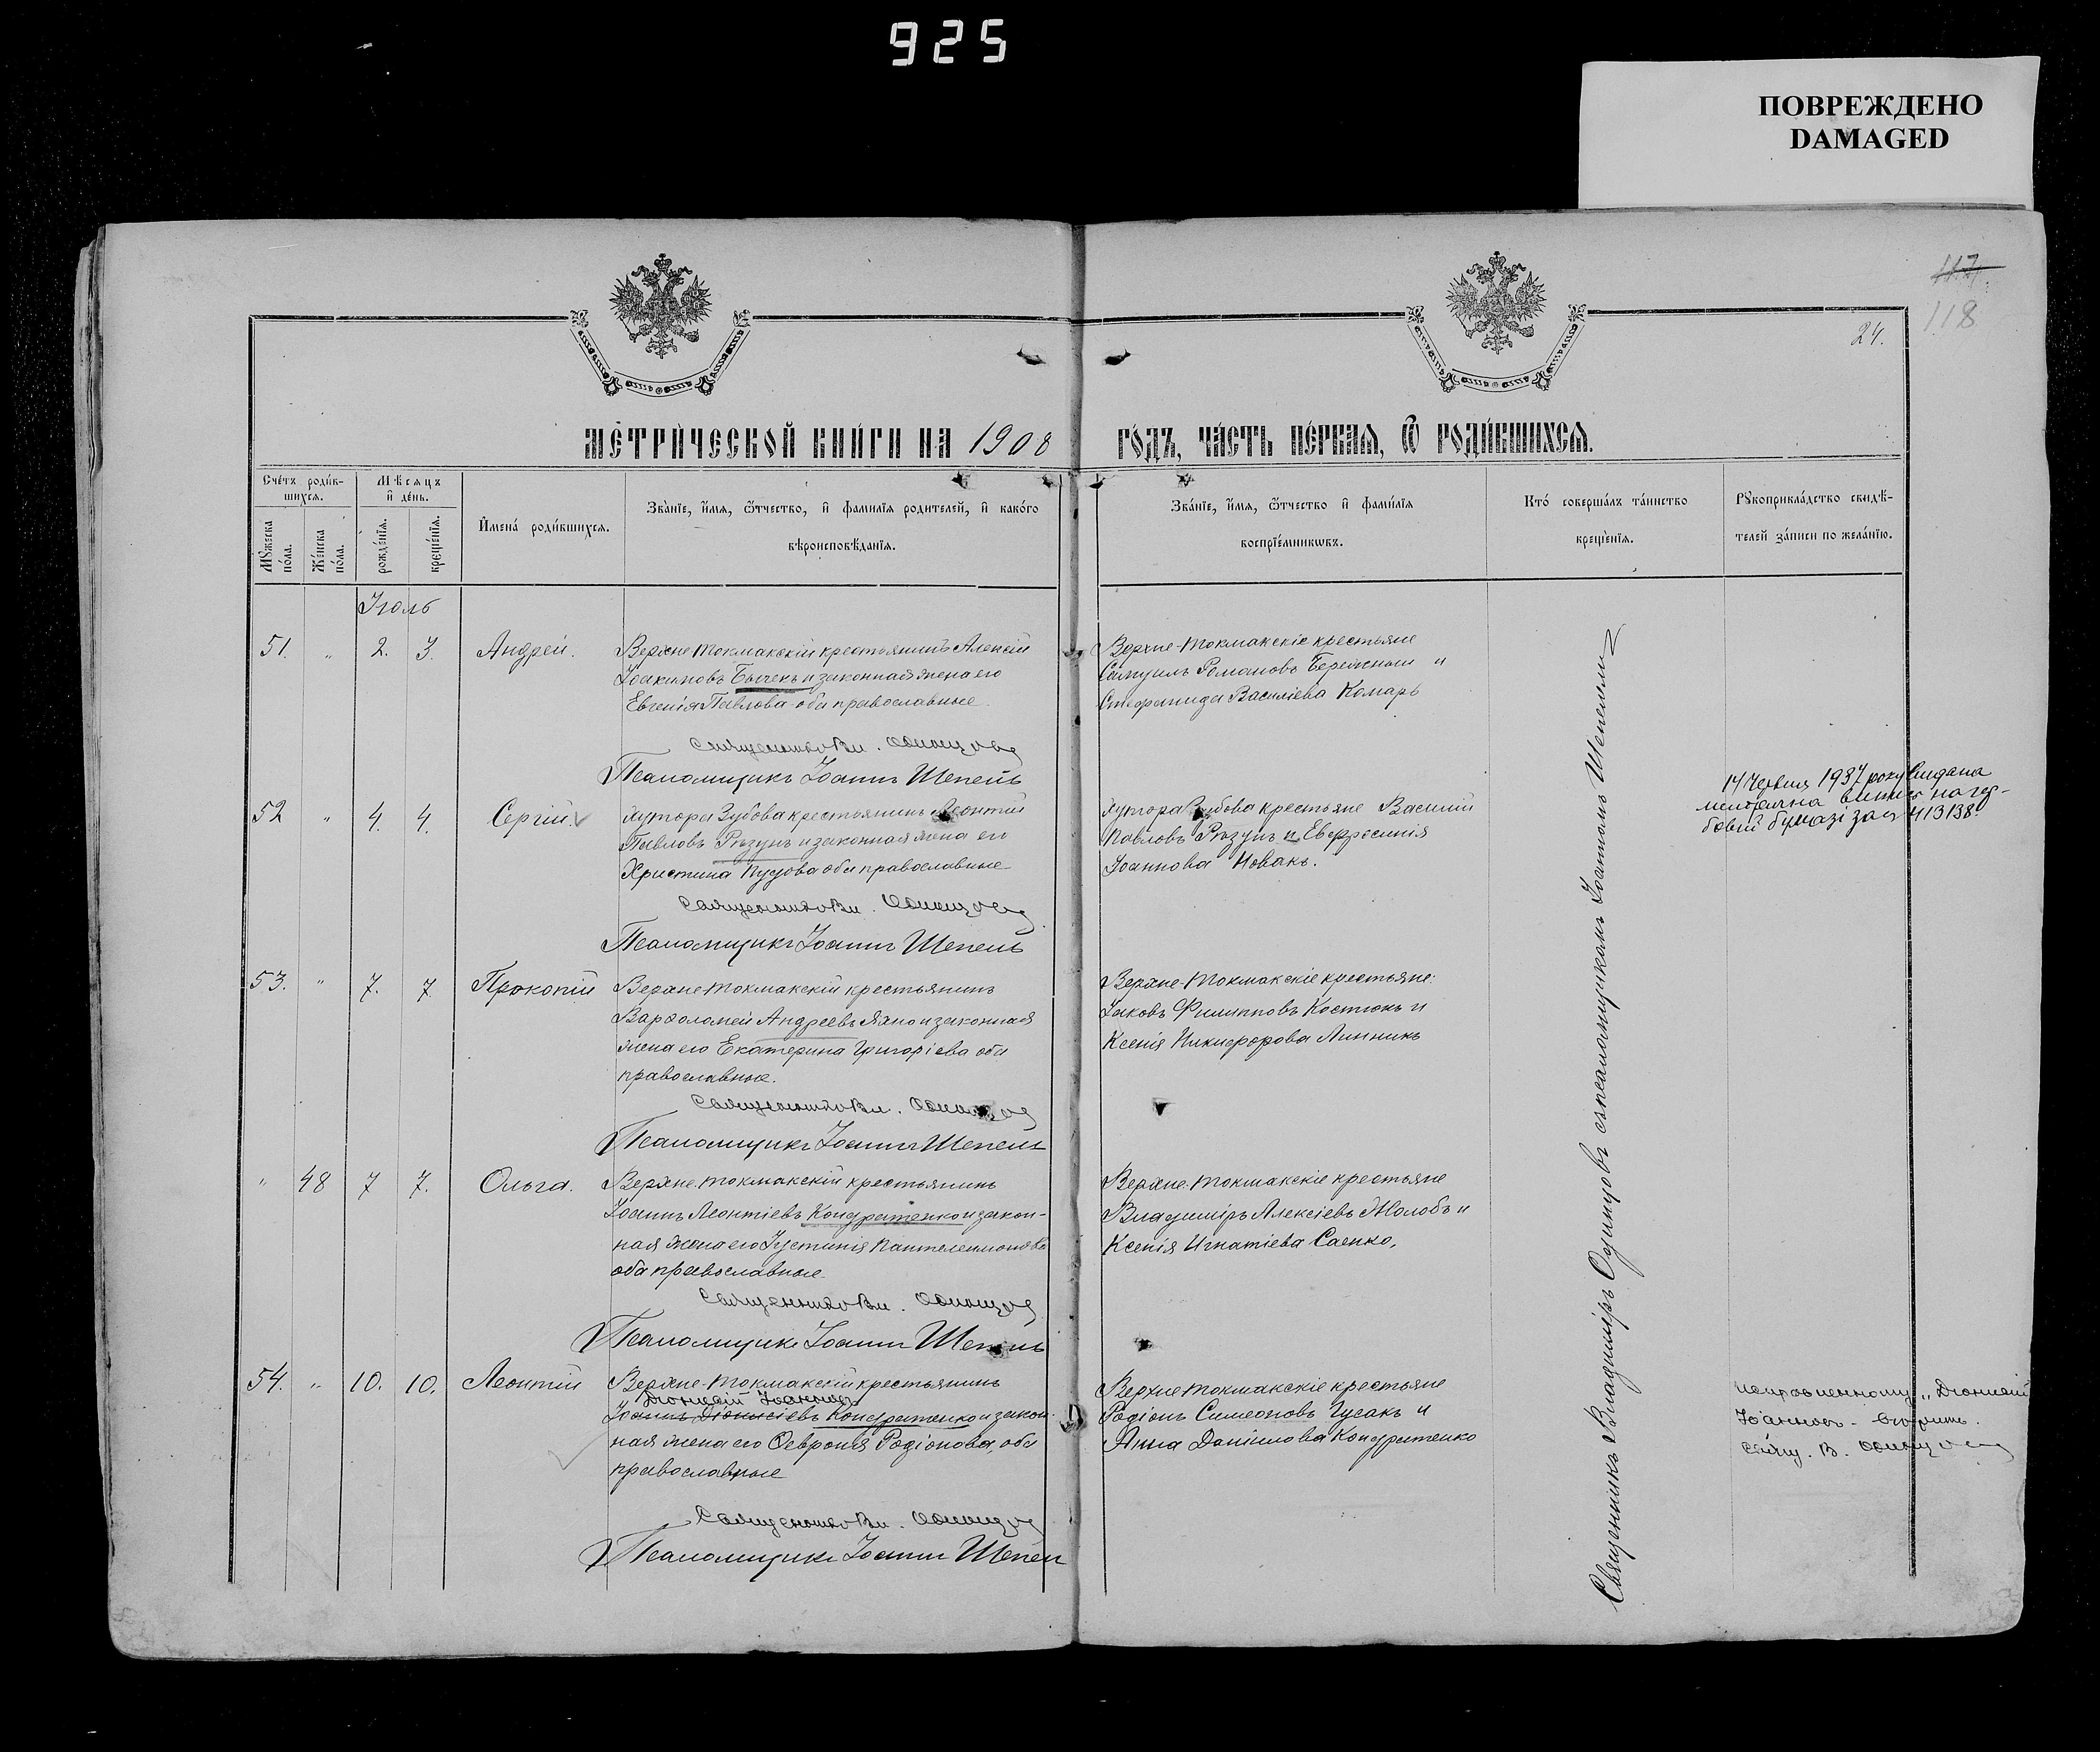 925
ПОВРЕЖДЕНО
DAMAGED
117
118
24.
МЕТРИЧЕСКОЙ КНИГИ НА 1908 ГОДЪ, ЧАСТЬ ПЕРВАЯ, Ѿ РОДИВШИХСЯ.
Счетъ родив-
шихся.
Мѣсяцъ
и день.
Мꙋжеска
пола.
Женска
пола.
рожденїя.
крещенїя.
Имена родившихся.
Званїе, имя, ѿчество, и фамилїя родителей, и какого
вѣроисповѣданїя.
Званїе, имя, ѿчество и фамилїя
воспрїемниковъ.
Кто совершалъ таинство
крещенїя.
Рꙋкоприкладство свидѣ-
телей записи по желанїю.
Іюль
51. " 2. 3. Андрей.
Верхне-Токмакскій крестьянинъ Алексій
Іоакимовъ Бычекъ и законная жена его
Евгенія Павлова оба православные.
Верхне-Токмакскіе крестьяне
Самуилъ Романовъ Бережный и
Стефанида Василіева Комаръ
Священникъ Вл. Одинцовъ
Псаломщикъ Іоаннъ Шепель
52 " 4. 4. Сергій.
Хутора Зубова крестьянинъ Леонтій
Павловъ Рѣзунъ и законная жена его
Христина Пудова оба православные
Хутора Зубова крестьяне Василій
Павловъ Рѣзунъ и Евфросинія
Іоаннова Новакъ.
14 Червня 1937 року видана
метрична на гер-
бовій бумазі за 413138.
Священникъ Вл. Одинцовъ
Псаломщикъ Іоаннъ Шепель
53. " 7. 7. Прокопій
Верхне-Токмакскій крестьянинъ
Варфоломей Андреевъ Яхно и законная
жена его Екатерина Григоріева оба
православные.
Верхне-Токмакскіе крестьяне:
Іаковъ Филипповъ Костюкъ и
Ксенія Никифорова Линникъ
Священникъ Вл. Одинцовъ
Псаломщикъ Іоаннъ Шепель
" 48 7 7. Ольга.
Верхне-Токмакскій крестьянинъ
Іоаннъ Леонтіевъ Кондратенко и закон-
ная жена его Іустинія Пантелеимонова
оба православные.
Верхне-Токмакскіе крестьяне
Владиміръ Алексіевъ Жолобъ и
Ксенія Игнатіева Саенко.
Священникъ Вл. Одинцовъ
Псаломщикъ Іоаннъ Шепель
54. " 10. 10. Леонтій
Верхне-Токмакскій крестьянинъ
Діонисій Іоанновъ
Іоаннъ Діонисіевъ Кондратенко и закон-
ная жена его Февронія Родіонова, оба
православные
Верхне Токмакскіе крестьяне
Родіонъ Симеоновъ Гусакъ и
Анна Даніилова Кондратенко
исправленному "Діонисій
Іоанновъ - вѣрить.
Свящ. В. Одинцовъ
Священникъ Вл. Одинцовъ
Псаломщикъ Іоаннъ Шепель
Священникъ Владиміръ Одинцовъ съ псаломщикомъ Іоанномъ Шепелемъ